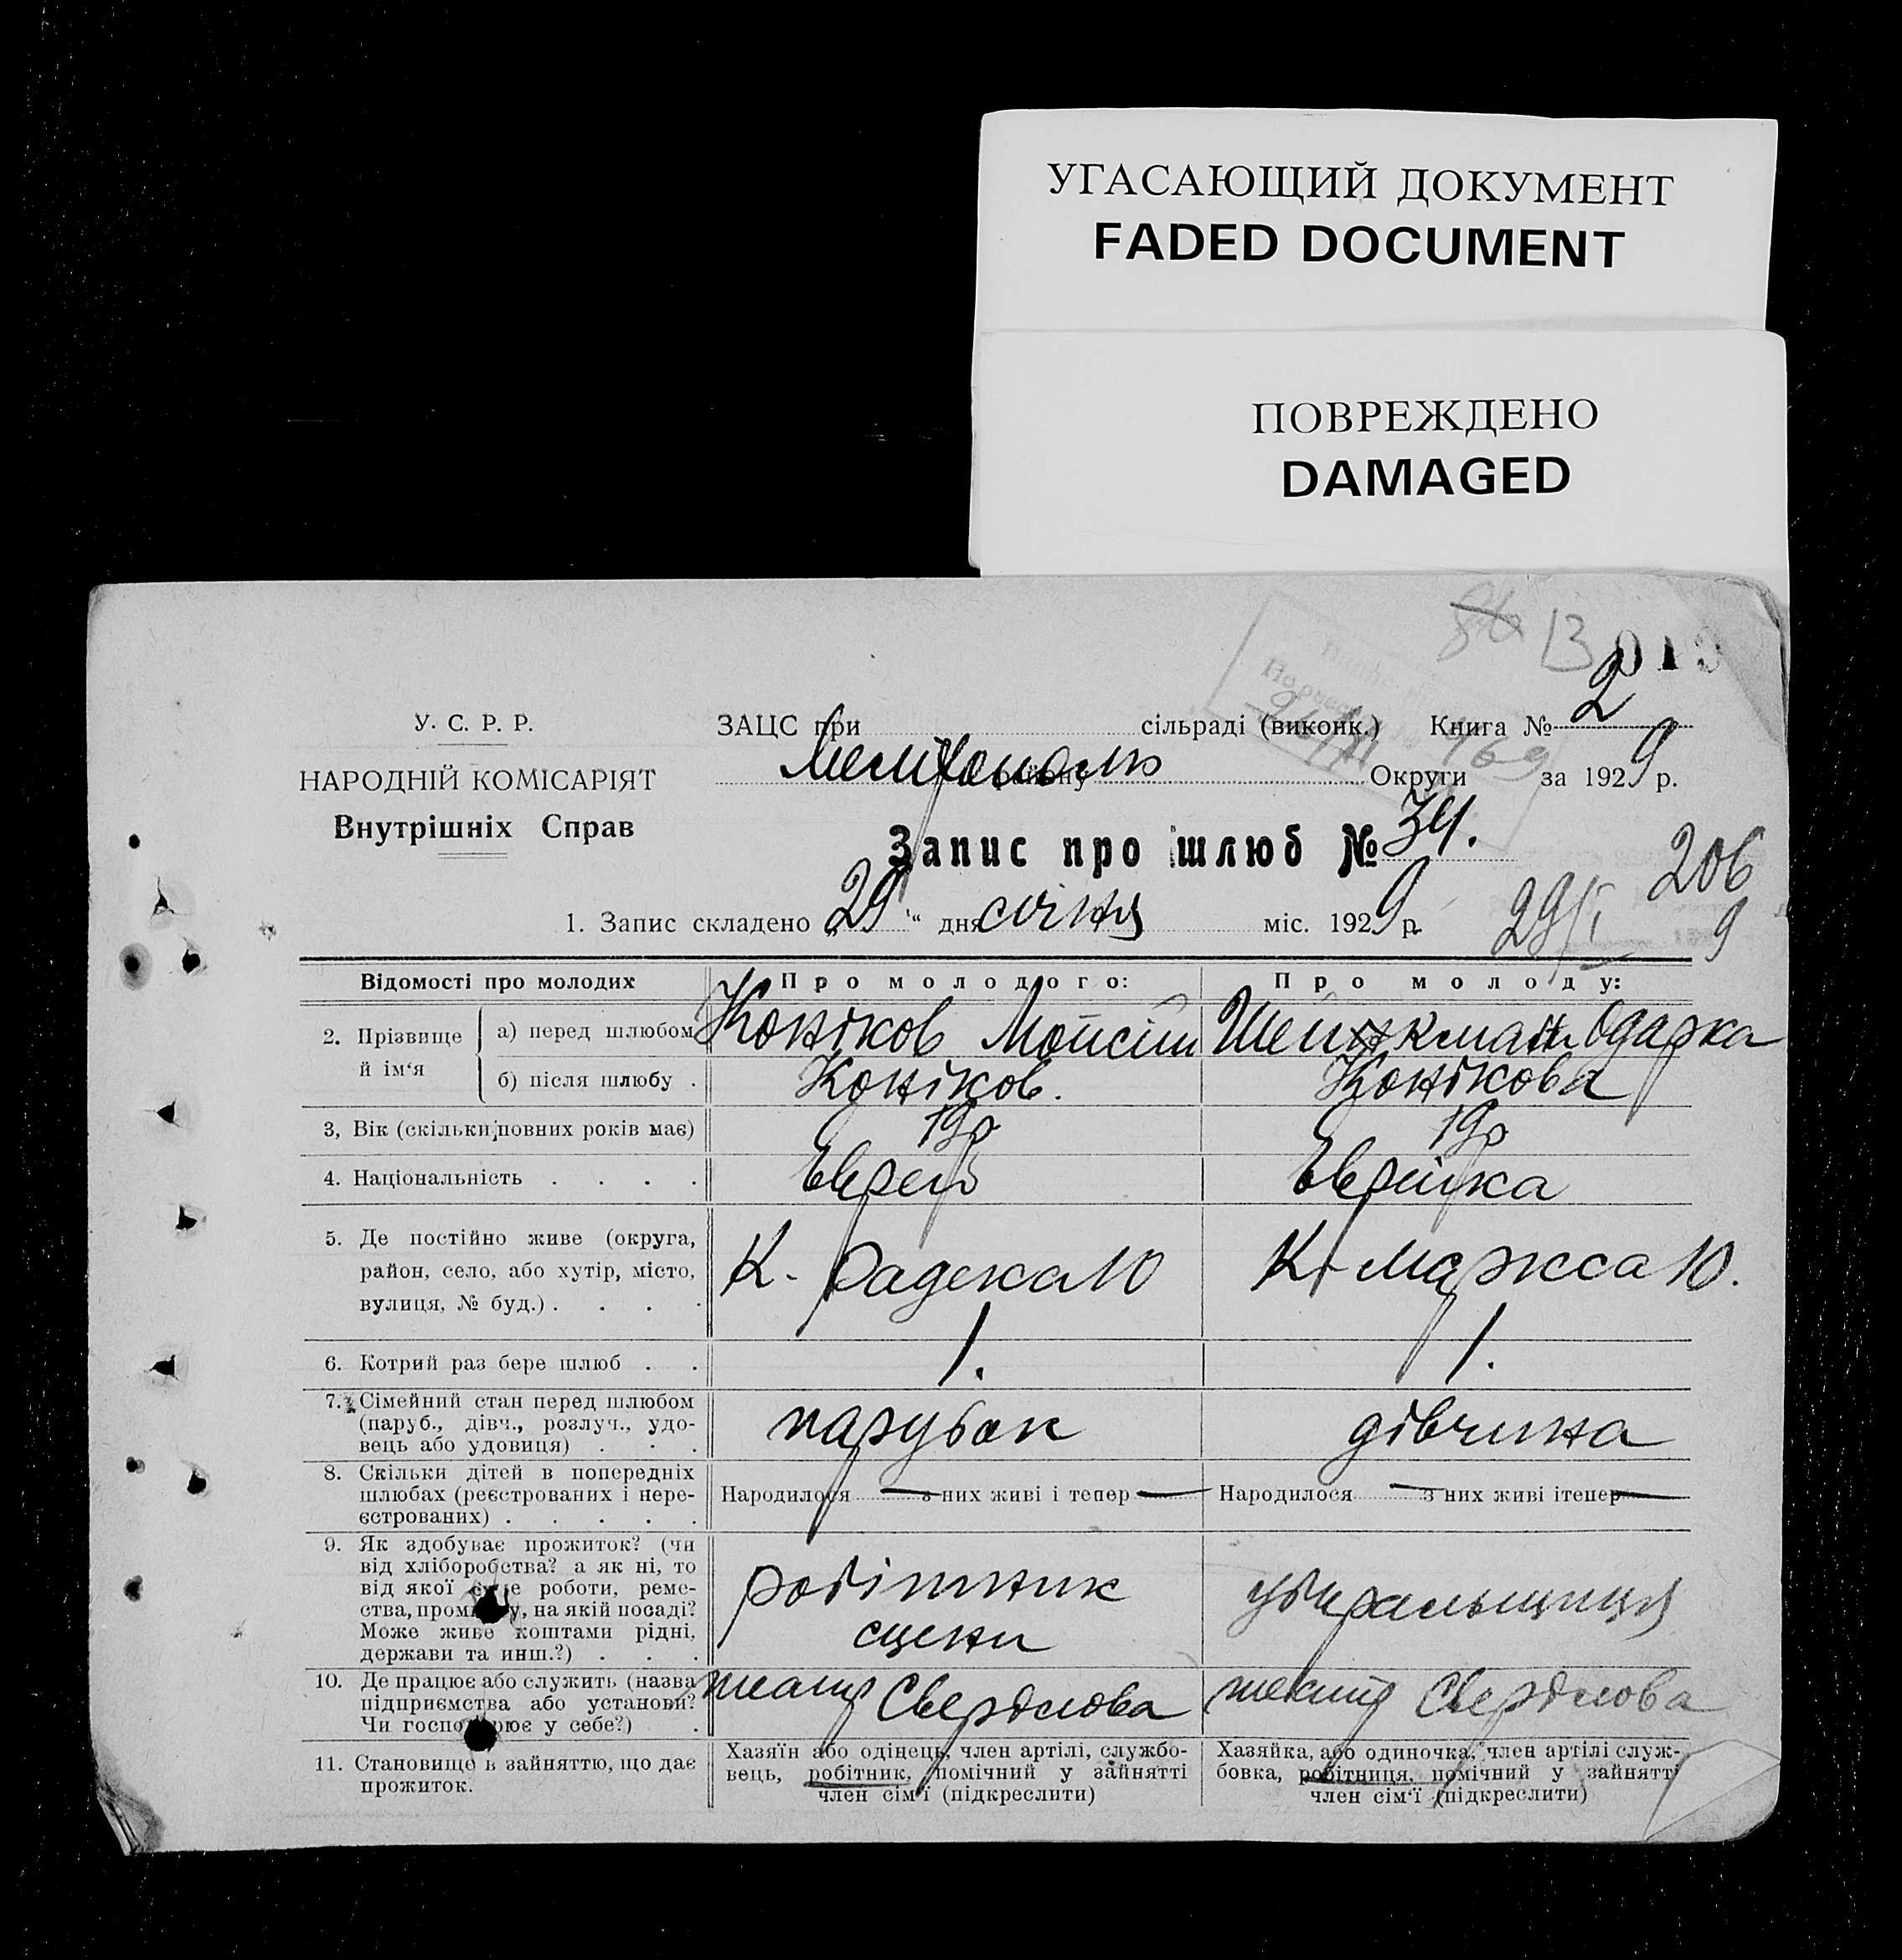 УГАСАЮЩИЙ ДОКУМЕНТ
FADED DOCUMENT
ПОВРЕЖДЕНО
DAMAGED
13
У. С. Р. Р.
НАРОДНІЙ КОМІСАРІЯТ
Внутрішніх Справ
ЗАЦС при сільраді (виконк.) Книга № 2
Мелітополь району Округи за 1929 р.
Запис про шлюб № 34.
206
1. Запис складено „29“ дня січня міс. 1929 р. 29/I 9
Відомості про молодих Про молодого: Про молоду:
2. Прізвище й ім‘я а) перед шлюбом Коніков Мойсій Шейнкман Одарка
б) після шлюбу . Коніков. Конікова
3, Вік (скільки повних років має) 19 р 19 р
4. Національність . . . . Еврей Еврейка
5. Де постійно живе (округа,
район, село, або хутір, місто,
вулиця, № буд.) . . . . К. Радека 10 К. Маркса 10.
6. Котрий раз бере шлюб . . 1. 1.
7. Сімейний стан перед шлюбом
(паруб., дівч., розлуч., удо-
вець або удовиця) . . . парубок дівчина
8. Скільки дітей в попередніх
шлюбах (реєстрованих і нере-
єстрованих) . . . . . Народилося — з них живі і тепер — Народилося — з них живі і тепер —
9. Як здобуває прожиток? (чи
від хліборобства? а як ні, то
від якої роботи, реме-
ства, на якій посаді?
Може живе коштами рідні,
держави та инш.?) . . . робітник сцени убиральщиця
10. Де працює або служить (назва
підприємства або установи?
Чи у себе?) . театр Свердлова театр Свердлова
11. Становище в зайняттю, що дає
прожиток.
Хазяїн або одінець, член артілі, службо-
вець, робітник, помічний у зайнятті
член сім‘ї (підкреслити)
Хазяйка, або одиночка, член артілі служ-
бовка, робітниця, помічний у зайнятті
член сім‘ї (підкреслити)